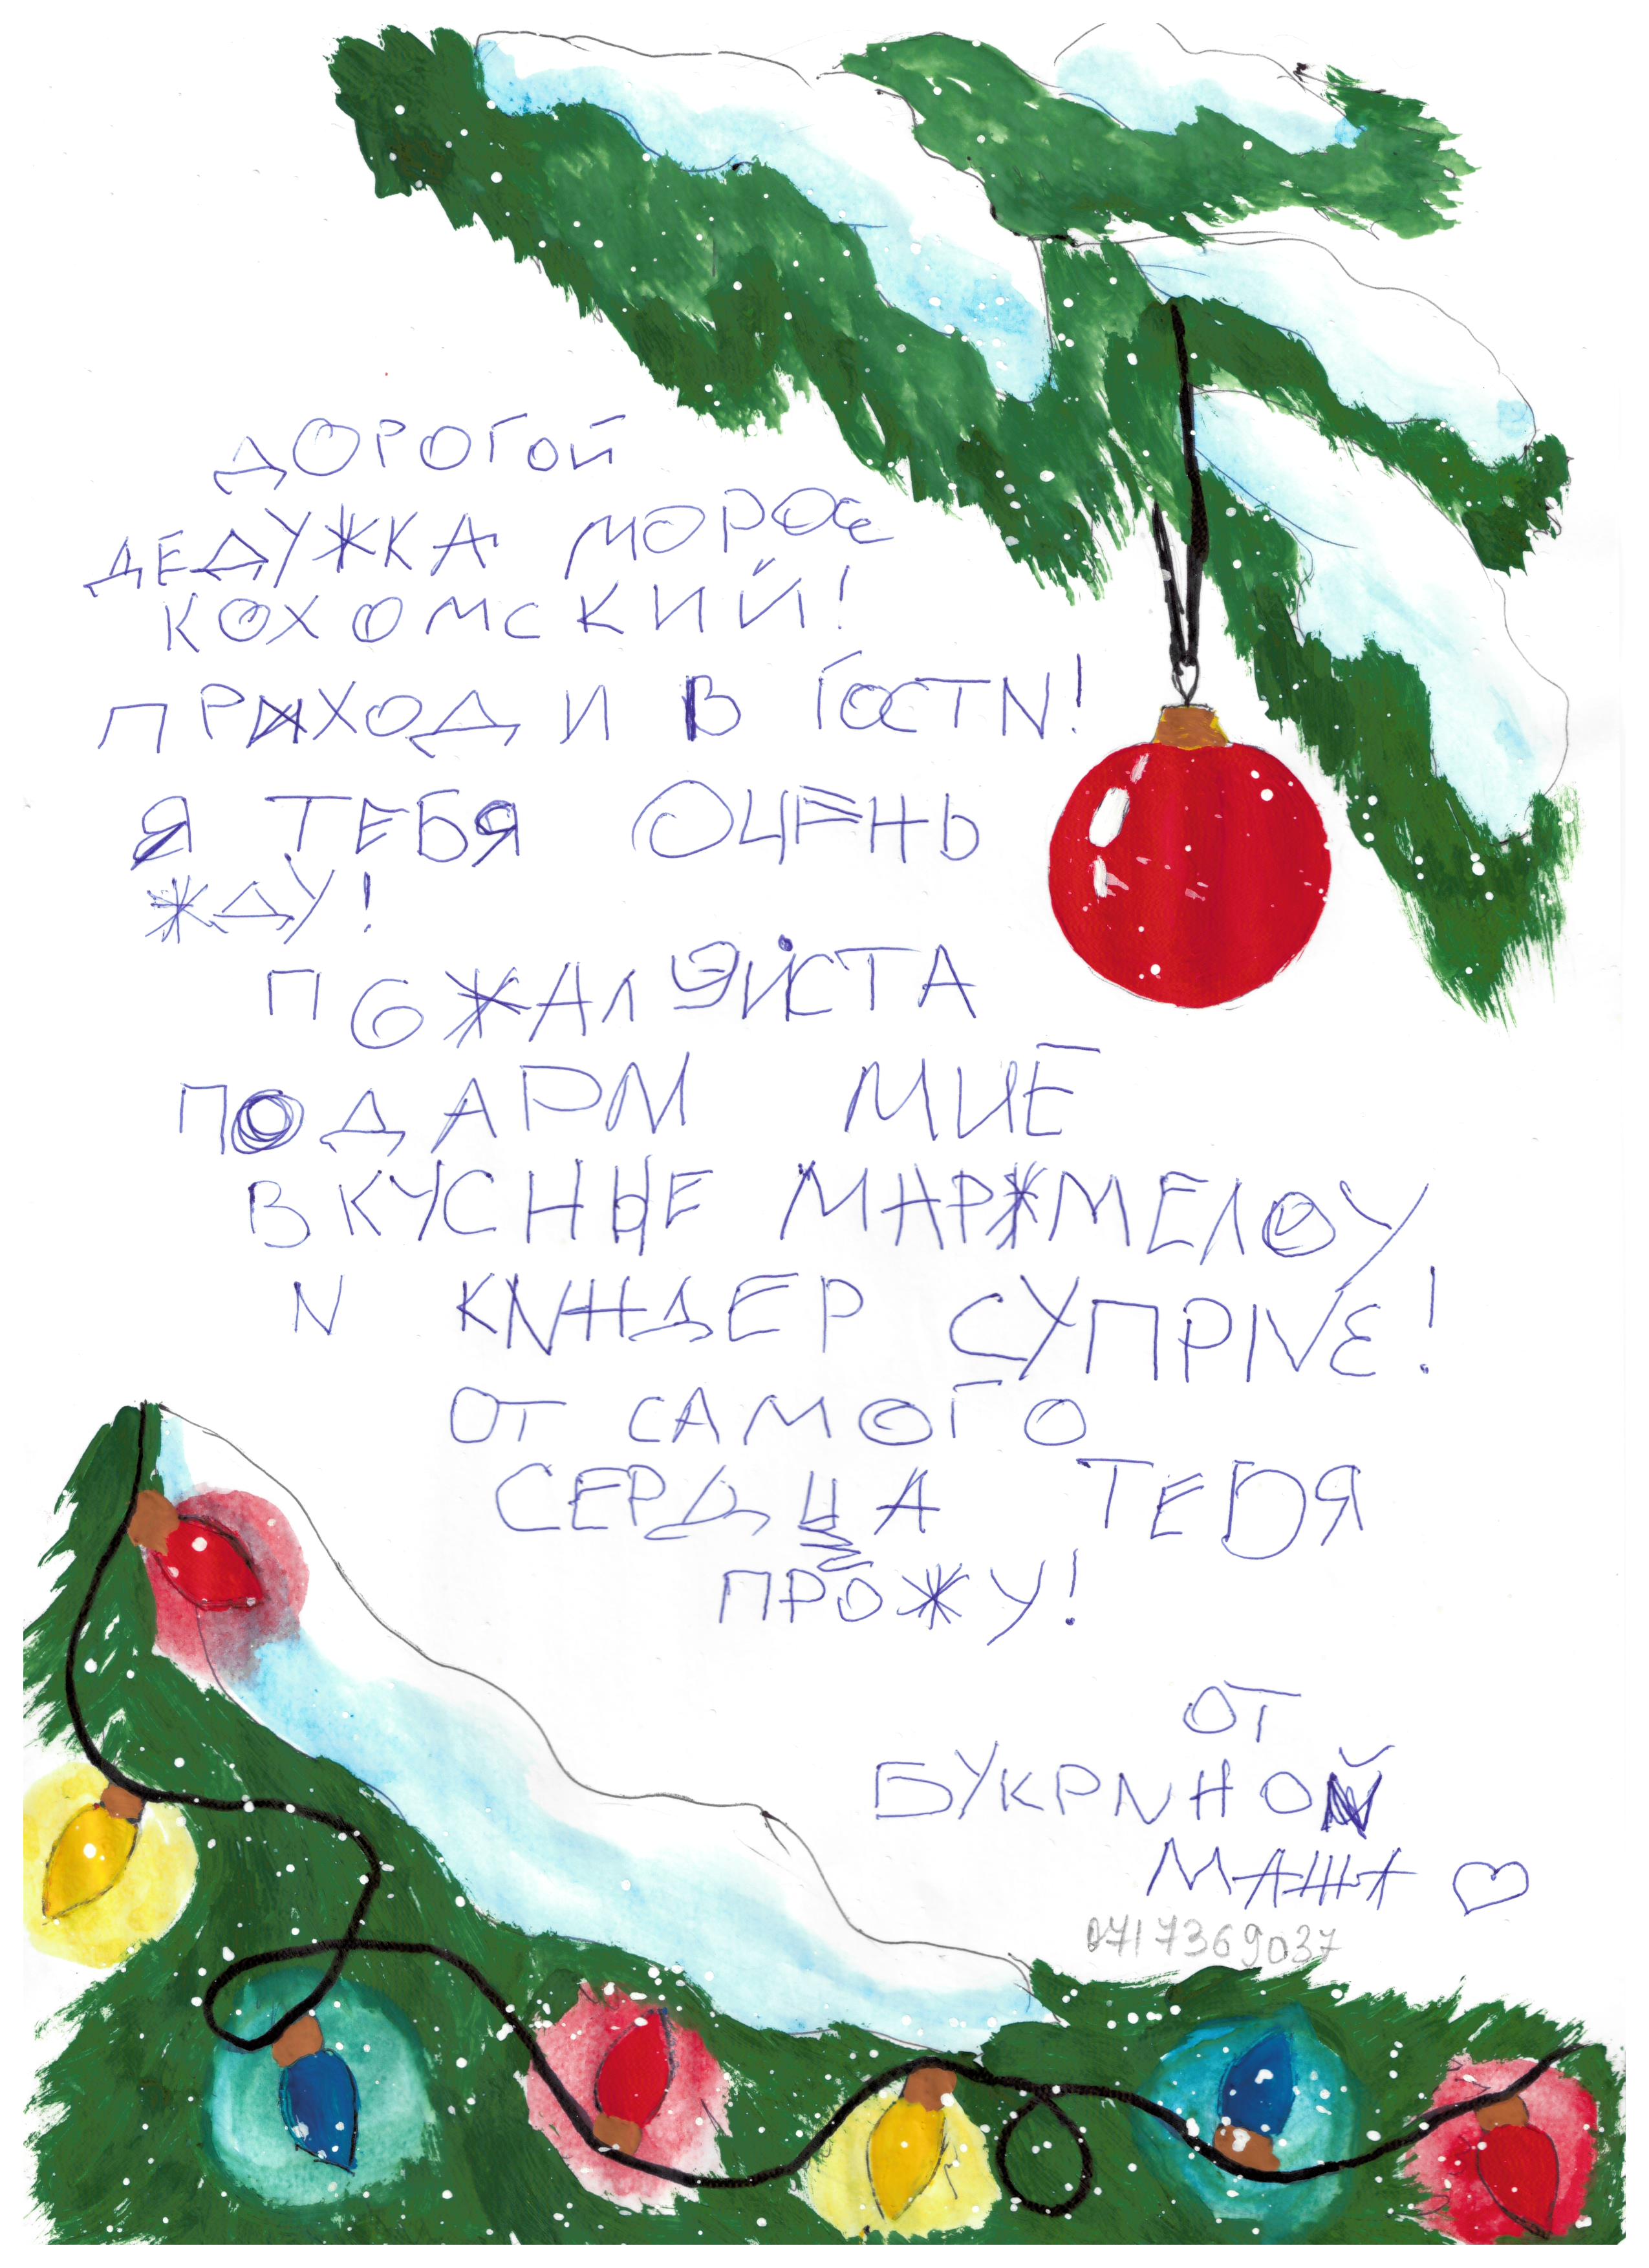 ДОРОГОЙ
ДЕДУЖКА МОРОС
КОХОМСКИЙ!
ПРИХОДИ В ГОСТИ!
Я ТЕБЯ ОЦЕНЬ
ЖДУ!
ПОЖАЛЭЙСТА
ПОДАРИ МИЕ
ВКУСНЫЕ МАРЖМЕЛОУ
И КИНДЕР СУПРІИЕ!
ОТ САМОГО
СЕРДЦА ТЕБЯ
ПРОЖУ!
ОТ
БУКРИНОЙ
МАША
0717369037